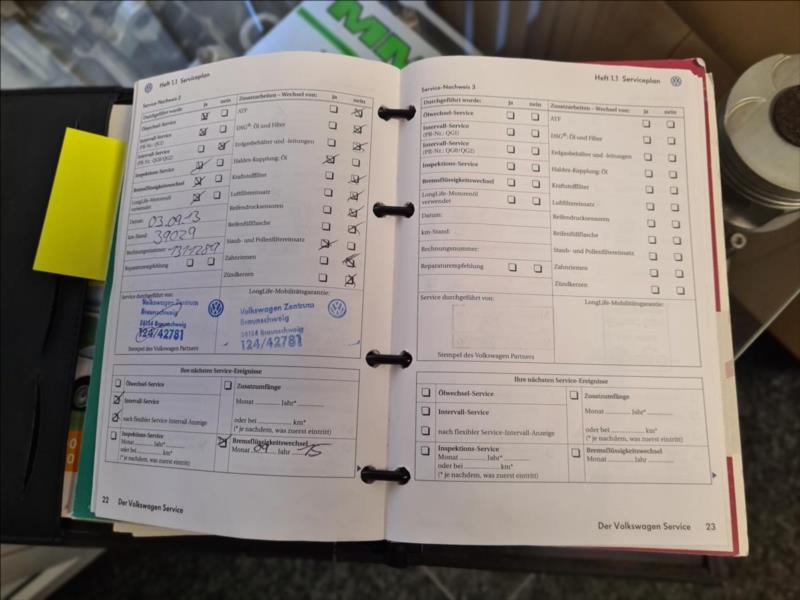 Heft 1.1 Serviceplan
Service-Nachweis 2
Durchgeführt wurde: ja nein
Ölwechsel-Service
Intervall-Service
(PR-Nr.: QG1)
Intervall-Service
(PR-Nr.: QG0/QG2)
Inspektions-Service
Bremsflüssigkeitswechsel
LongLife-Motorenöl
verwendet
Datum: 03.09.13
km-Stand: 39029
Rechnungsnummer:
Reparaturempfehlung
Zusatzarbeiten – Wechsel von: ja nein
ATF
DSG®: Öl und Filter
Erdgasbehälter und -leitungen
Haldex-Kupplung: Öl
Kraftstofffilter
Luftfiltereinsatz
Reifendrucksensoren
Reifenfüllflasche
Staub- und Pollenfiltereinsatz
Zahnriemen
Zündkerzen
Service durchgeführt von:
Volkswagen Zentrum
Braunschweig
38154 Braunschweig
124/42781
Stempel des Volkswagen Partners
LongLife-Mobilitätsgarantie:
Volkswagen Zentrum
Braunschweig
38154 Braunschweig
124/42781
Ihre nächsten Service-Ereignisse
Ölwechsel-Service
Intervall-Service
nach flexibler Service-Intervall-Anzeige
Inspektions-Service
Monat Jahr*
oder bei km*
(* je nachdem, was zuerst eintritt)
Zusatzumfänge
Monat Jahr*
oder bei km*
(* je nachdem, was zuerst eintritt)
Bremsflüssigkeitswechsel
Monat 09 Jahr 15
22 Der Volkswagen Service
Heft 1.1 Serviceplan
Service-Nachweis 3
Durchgeführt wurde: ja nein
Ölwechsel-Service
Intervall-Service
(PR-Nr.: QG1)
Intervall-Service
(PR-Nr.: QG0/QG2)
Inspektions-Service
Bremsflüssigkeitswechsel
LongLife-Motorenöl
verwendet
Datum:
km-Stand:
Rechnungsnummer:
Reparaturempfehlung
Zusatzarbeiten – Wechsel von: ja nein
ATF
DSG®: Öl und Filter
Erdgasbehälter und -leitungen
Haldex-Kupplung: Öl
Kraftstofffilter
Luftfiltereinsatz
Reifendrucksensoren
Reifenfüllflasche
Staub- und Pollenfiltereinsatz
Zahnriemen
Zündkerzen
Service durchgeführt von:
Stempel des Volkswagen Partners
LongLife-Mobilitätsgarantie:
Ihre nächsten Service-Ereignisse
Ölwechsel-Service
Intervall-Service
nach flexibler Service-Intervall-Anzeige
Inspektions-Service
Monat Jahr*
oder bei km*
(* je nachdem, was zuerst eintritt)
Zusatzumfänge
Monat Jahr*
oder bei km*
(* je nachdem, was zuerst eintritt)
Bremsflüssigkeitswechsel
Monat Jahr
Der Volkswagen Service 23